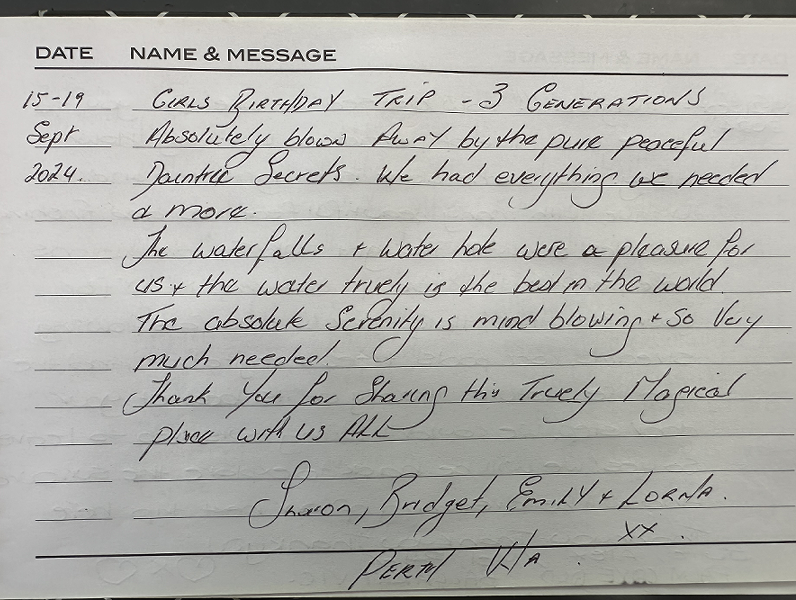 DATE NAME & MESSAGE
15-19 GIRLS BIRTHDAY TRIP - 3 GENERATIONS
Sept Absolutely blown AWAY by the pure peaceful
2024. Daintree Secrets. We had everything we needed
& more.
The waterfalls + water hole were a pleasure for
us + the water truely is the best in the world
The absolute Serenity is mind blowing + so very
much needed.
Thank You for Sharing this Truely Magical
place with us ALL
Sharon, Bridget, EMILY + LORNA.
xx.
PERTH W/A.